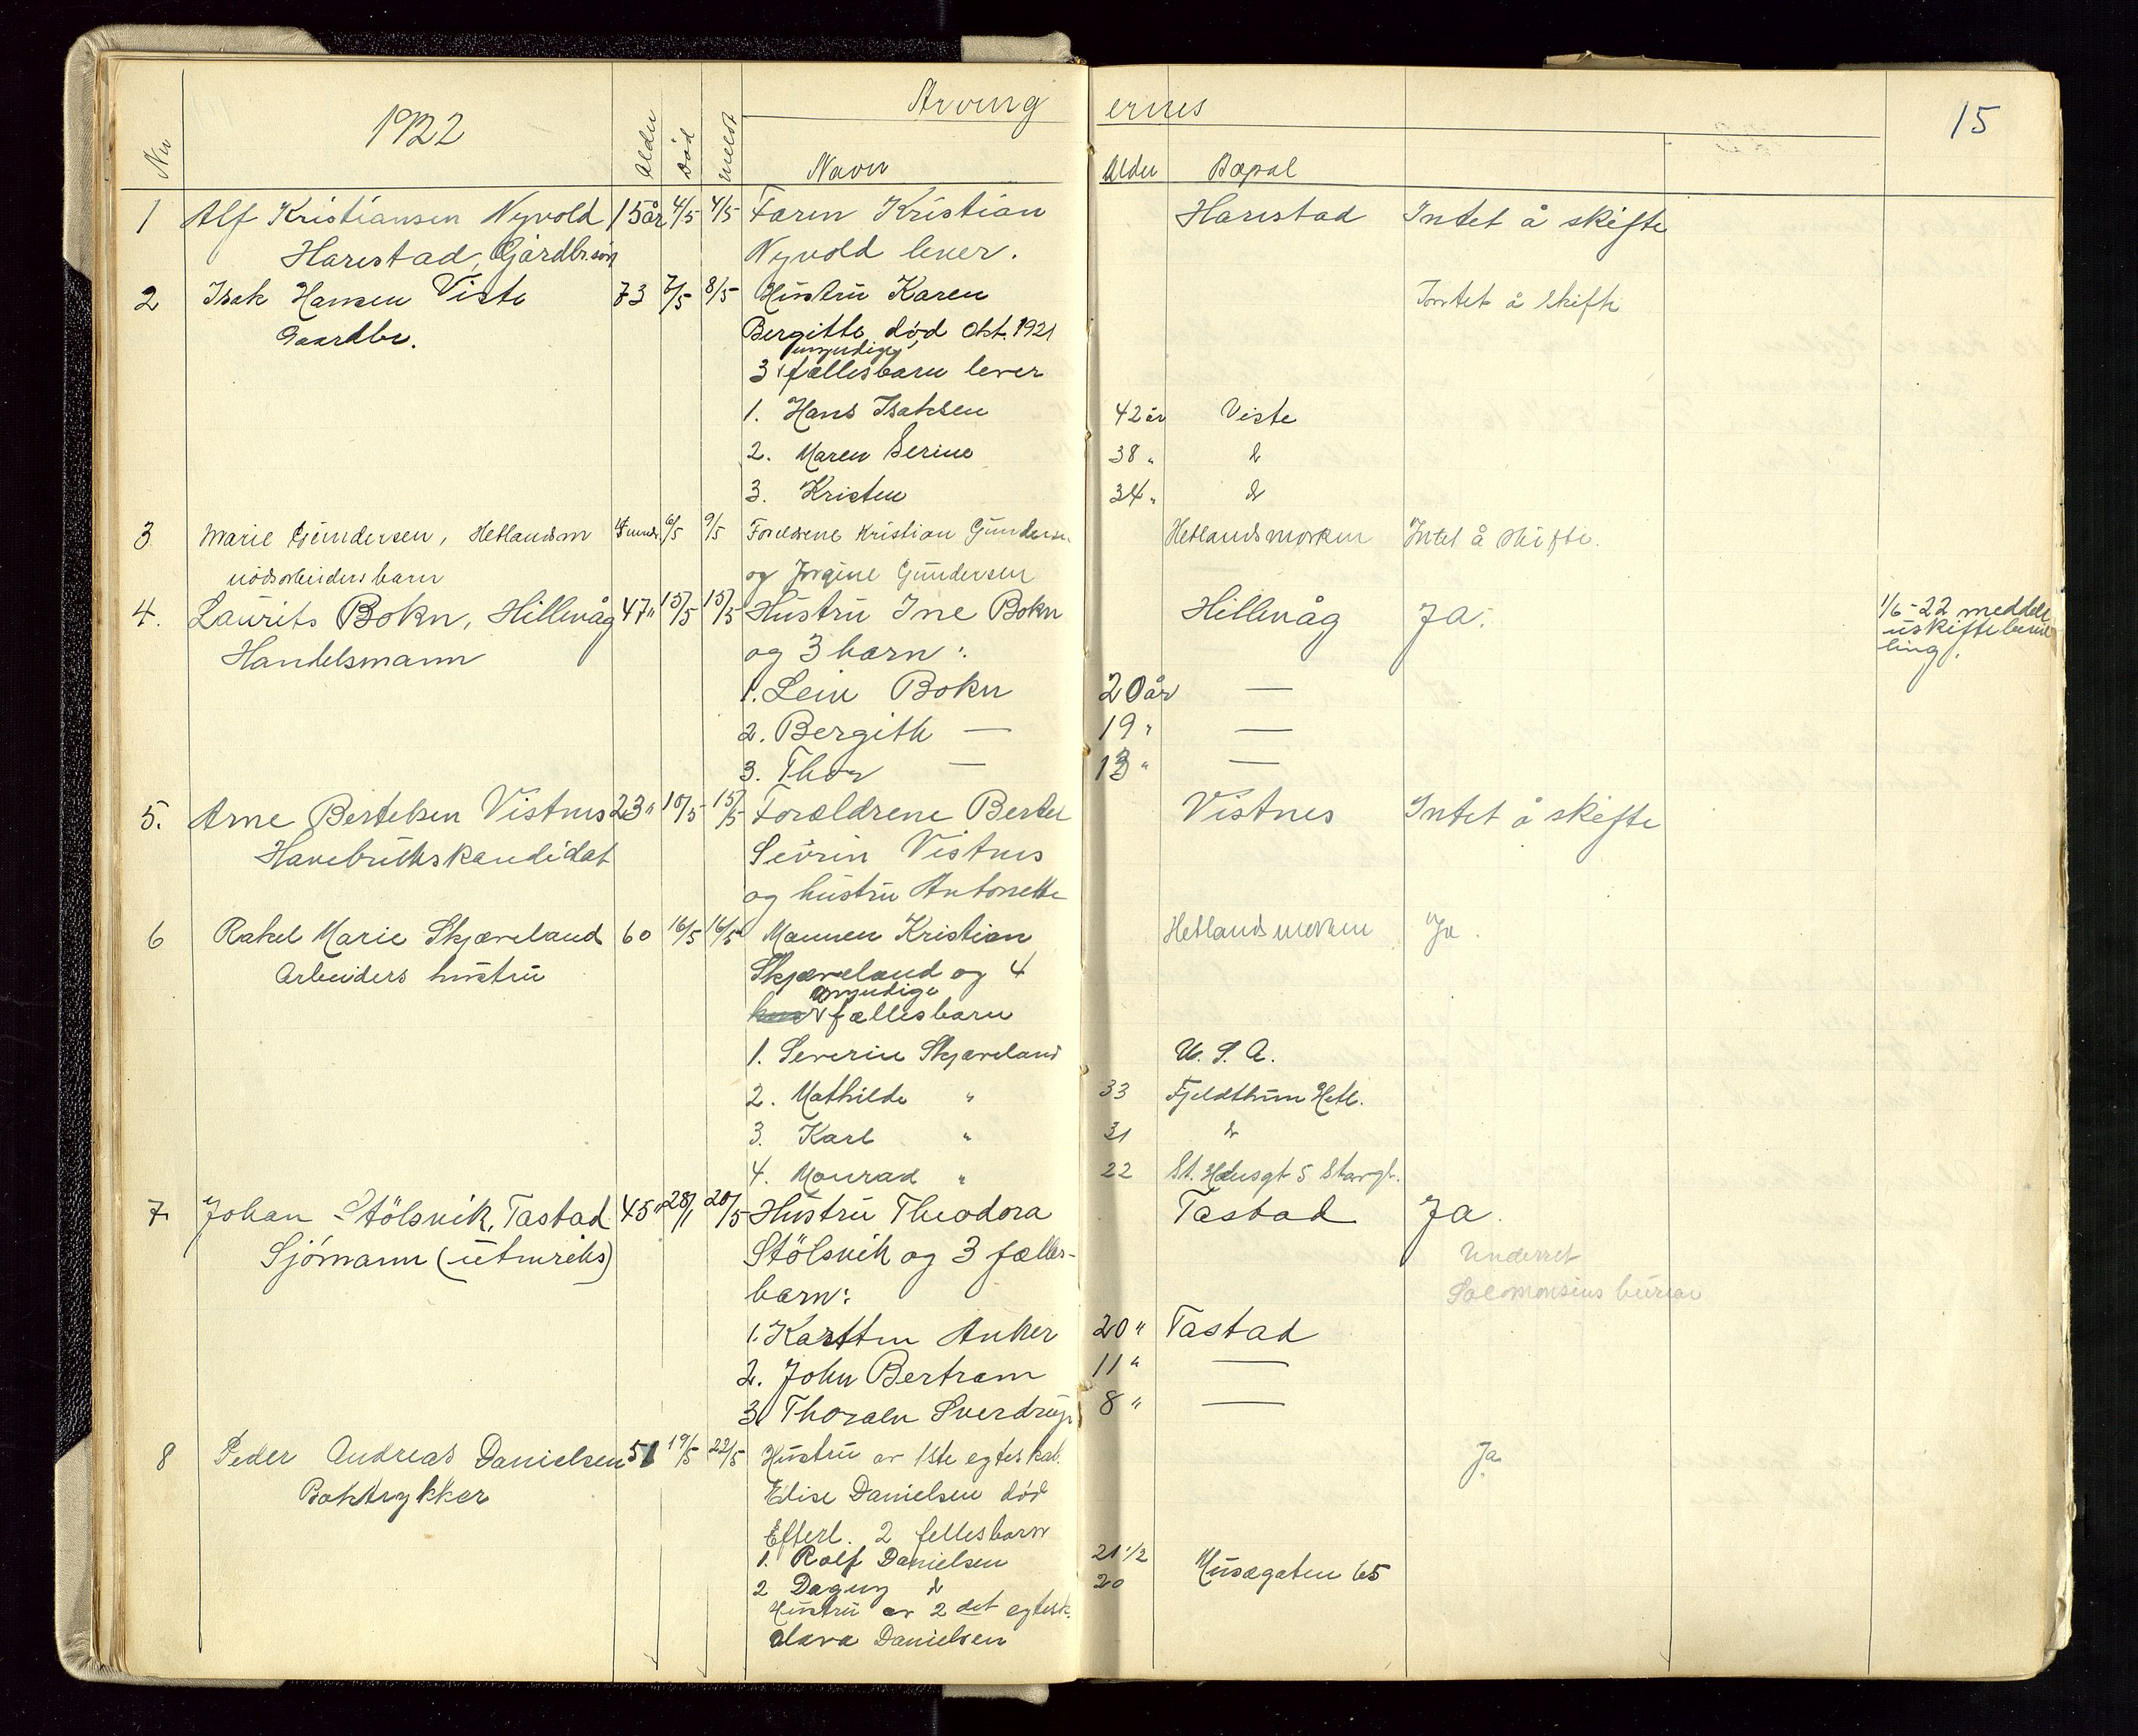 1922
Arving ernes
15
Nr Alder Død meldt Navn Alder Bopæl
1 Alf Kristiansen Nyvold 15 år 4/5 4/5 Faren Kristian Harestad Intet å skifte
Harestad, Gårdbr.søn Nyvold lever.
2 Isak Hansen Viste 73 7/5 8/5 Hustru Karen Intet å skifte
Gaardbr. Bergitte, død Okt. 1921
umyndige
3 fællesbarn lever
1. Hans Isaksen 42 år Viste
2. Maren Serine 38 "
3. Kristen 34 "
3 Marie Gundersen, Hetlandsm 6/5 9/5 Foreldrene Kristian Gundersen Hetlandsmarken Intet å skifte.
nødsarbeiders barn og Jorgine Gundersen
4. Laurits Bokn, Hillevåg 47 " 15/5 15/5 Hustru Ine Bokn Hillevåg Ja. 1/6-22 meddelt
Handelsmann og 3 barn: uskiftebevil
ling.
1. Lein Bokn 20 år —
2. Bergith — 19 " —
3. Thor — 13 " —
5. Arne Bertelsen Vistnes 23 " 10/5 15/5 Forældrene Bertel Vistnes Intet å skifte
Havebrukskandidat Sevrin Vistnes
og hustru Antonette
6 Rakel Marie Skjæveland 60 16/5 16/5 Mannen Kristian Hetlandsmarken Ja.
Arbeiders hustru Skjæveland og 4
myndige
fællesbarn
1. Severin Skjæveland U. S. A.
2. Mathilde " 33 Fjeldthun Hetl.
3. Karl " 31
4. Monrad " 22 St. Hansgt 5 Stavgr.
7. Johan Stölsvik, Tastad 45 " 28/1 20/5 Hustru Theodora Tastad Ja.
Sjömann (utenriks) Stölsvik og 3 fælles- Underret
barn: Salomonsens bureau
1. Karsten Anker 20 " Tastad
2. John Bertram 11 " —
3. Thoralv Sverdrup 8 " —
8 Peder Andreas Danielsen 51 19/5 22/5 Hustru av 1ste egteskab. Ja.
Boktrykker Elise Danielsen død
Efterl. 2 fellesbarn
1. Rolf Danielsen 21 1/2 Musægaten 65
2 Dagny 20
Hustru av 2det egtesk.
Clara Danielsen